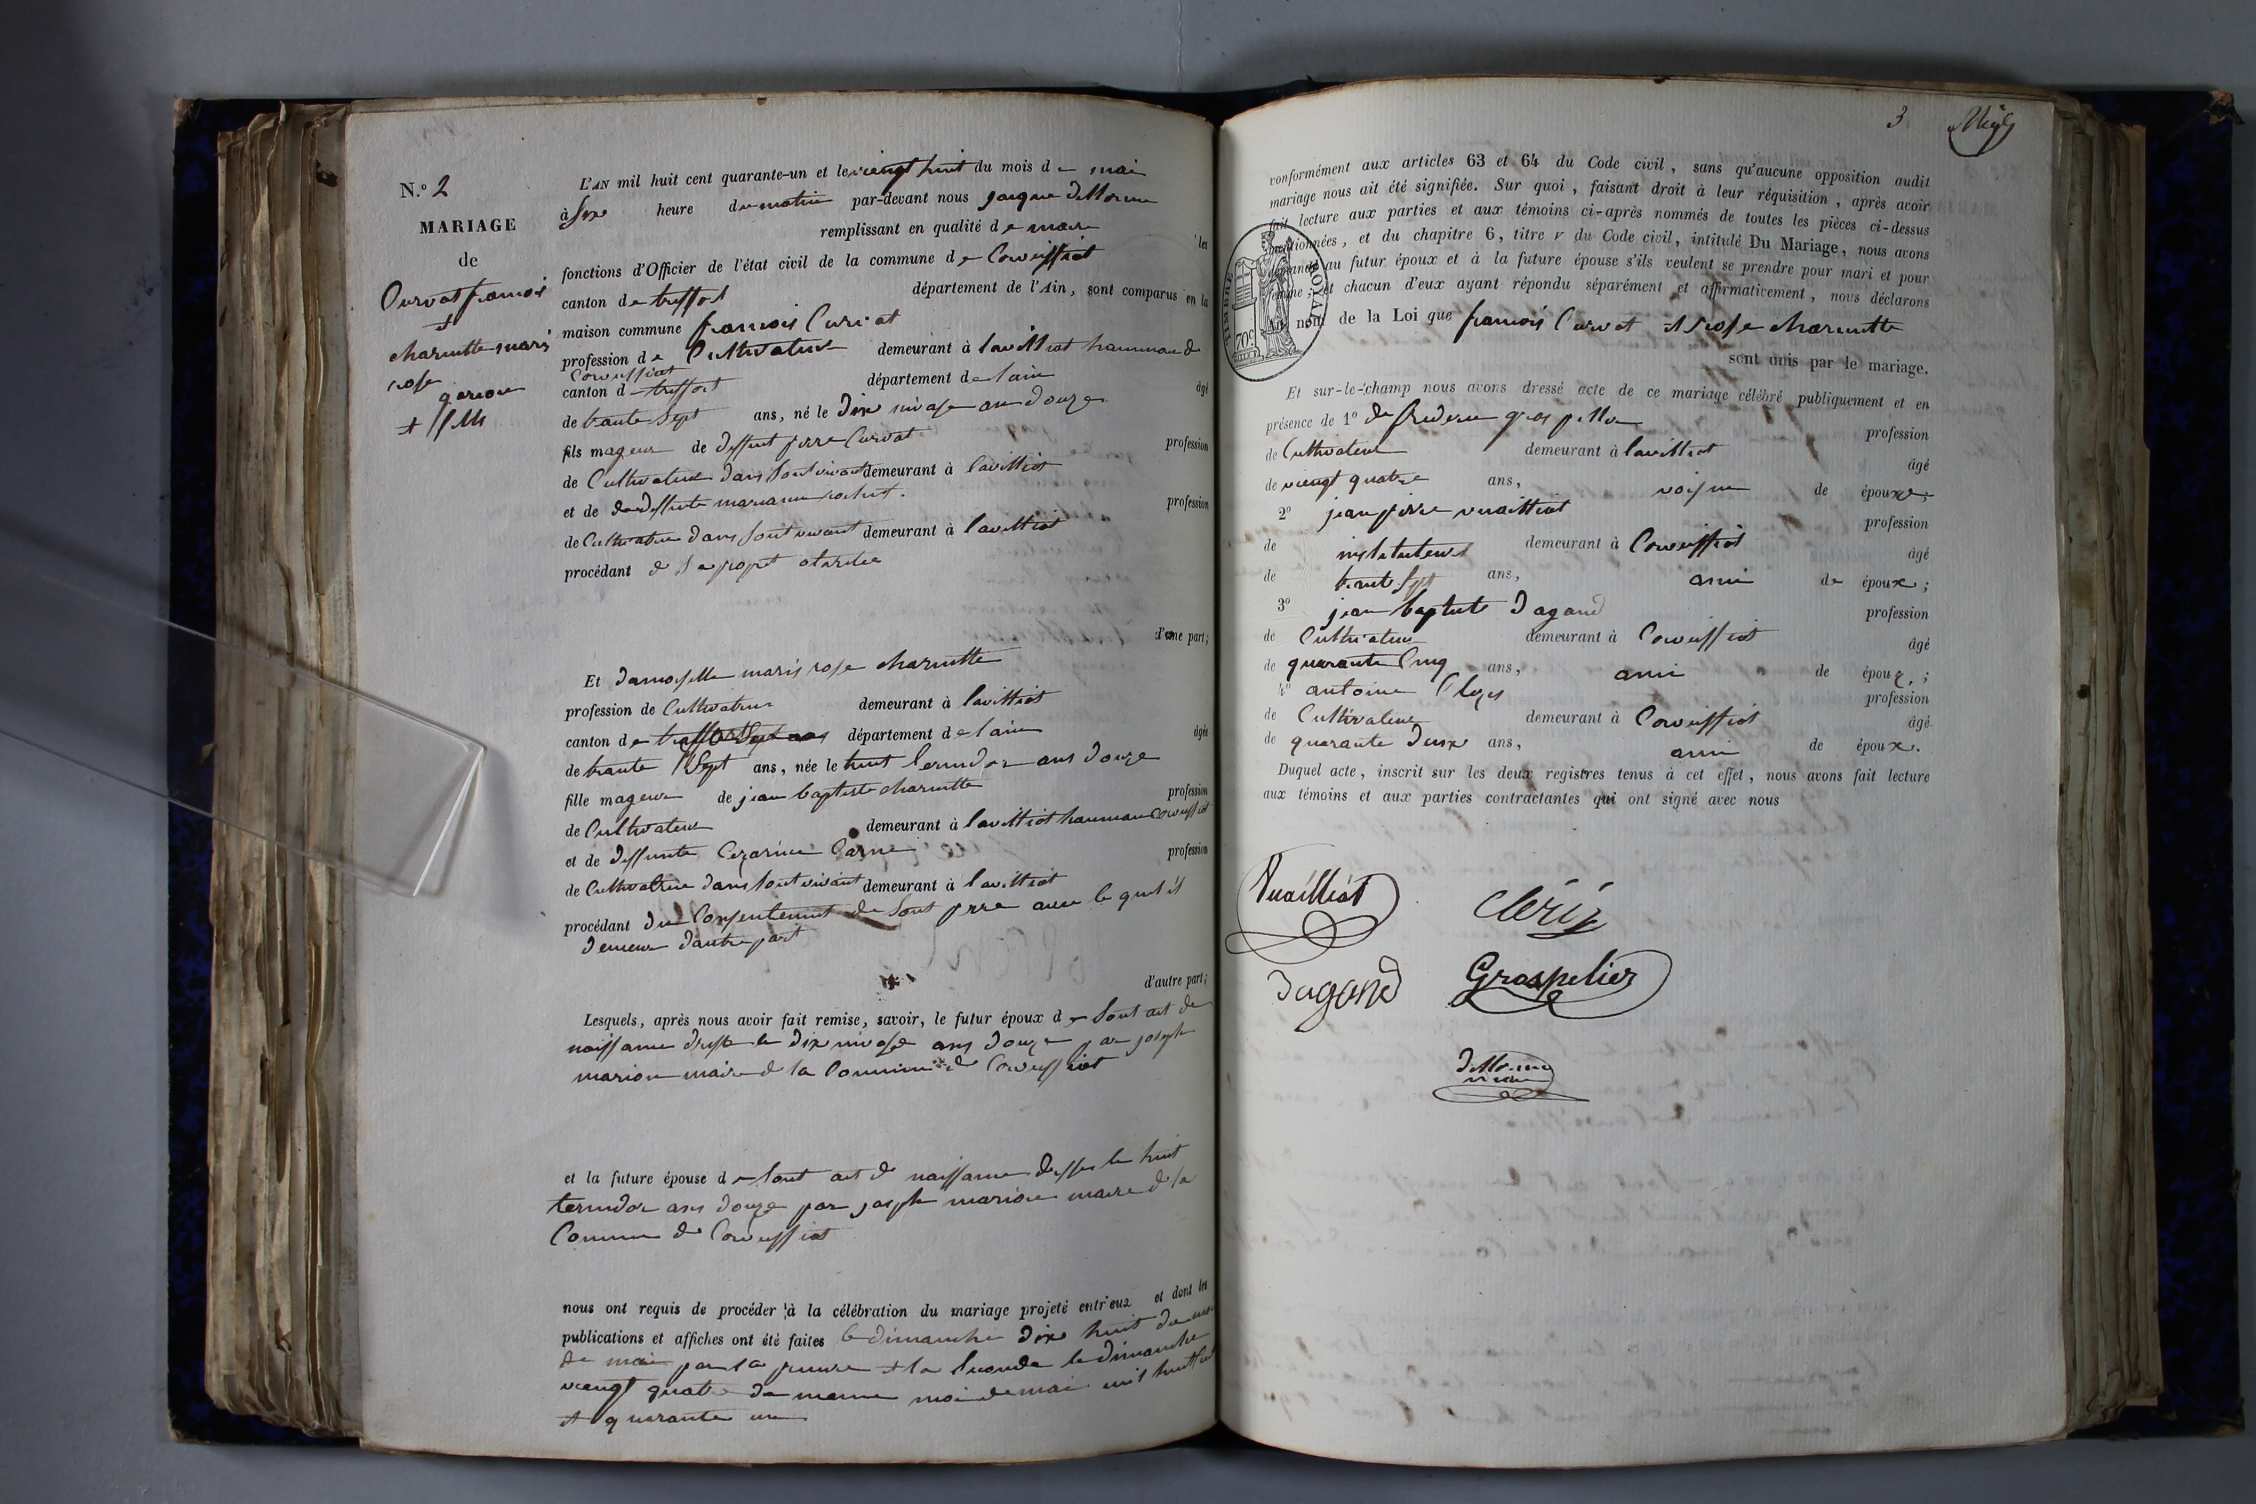 N.º 2
MARIAGE
de
Curvat francois
et
charnette maris
rose
garcon
et fille
L'AN mil huit cent quarante-un et le viengt huit du mois de mai
à Six heure du matin par-devant nous jacque
remplissant en qualité de maire les
fonctions d'Officier de l'état civil de la commune de Coweissiat
canton de treffort département de l'Ain, sont comparus en la
maison commune francois Curvat
profession de Cultivateur demeurant à lavilliat hammau de
Coweissiat
canton d treffort département de lain âgé
de trante Sept ans, né le Dix nivose an douze
fils mageur de deffunt pierre Curvat profession
de Cultivateur dans Sont vivant demeurant à lavilliat
et de de deffunte marianne rochet. profession
de Cultivatrice dans Sont vivant demeurant à lavilliat
procédant de Sa propt
d'une part;
Et Damoiselle maris rose charnette
profession de Cultivatrice demeurant à lavilliat
canton de département de lain âgée
de trante Sept ans, née le huit termidor ans douze
fille mageure de jean baptiste charnette profession
de Cultivateur demeurant à lavilliat hammau Coweissiat
et de deffunte Cezarine Carne profession
de Cultivatrice dans Sont vivant demeurant à lavilliat
procédant du Consentement de Sont pere avec le quel il
demeure dautre part
d'autre part;
Lesquels, après nous avoir fait remise, savoir, le futur époux de Sont act de
naissance le Dix nivose ans douze par joseph
marion maire de la Commune de Coweissiat
et la future épouse de Sont act de naissance le huit
termidor ans douze par joseph marion maire de la
Commune de Coweissiat
nous ont requis de procéder à la célébration du mariage projeté entr'eux et dont les
publications et affiches ont été faites le dimanche dix huit du mois
de mai pour la et la Seconde le dimanche
viengt quatre de meme moi de mai mil huit cent
et quarante un
3
conformément aux articles 63 et 64 du Code civil, sans qu'aucune opposition audit
mariage nous ait été signifiée. Sur quoi, faisant droit à leur réquisition, après avoir
fait lecture aux parties et aux témoins ci-après nommés de toutes les pièces ci-dessus
mentionnées, et du chapitre 6, titre v du Code civil, intitulé Du Mariage, nous avons
demandé au futur époux et à la future épouse s'ils veulent se prendre pour mari et pour
femme; et chacun d'eux ayant répondu séparément et affirmativement, nous déclarons
au nom de la Loi que francois Curvat et rose charnette
sont unis par le mariage.
TIMBRE ROYAL
70 c
Et sur-le-champ nous avons dressé acte de ce mariage célébré publiquement et en
présence de 1º de frederic gros pellier profession
de Cultivateur demeurant à lavilliat âgé
de viengt quatre ans, voisin de époux;
2º jean pierre vuailliat profession
de instituteur demeurant à Coweissiat âgé
de trante Sept ans, ami de époux;
3º jean baptiste Dagand profession
de Cultivateur demeurant à Coweissiat âgé
de quarante Cinq ans, ami de époux;
4º antoine profession
de Cultivateur demeurant à Coweissiat âgé
de quarante deux ans, ami de époux.
Duquel acte, inscrit sur les deux registres tenus à cet effet, nous avons fait lecture
aux témoins et aux parties contractantes qui ont signé avec nous
Vuailliat
Cleriz
Dagand
Grospelier
maire